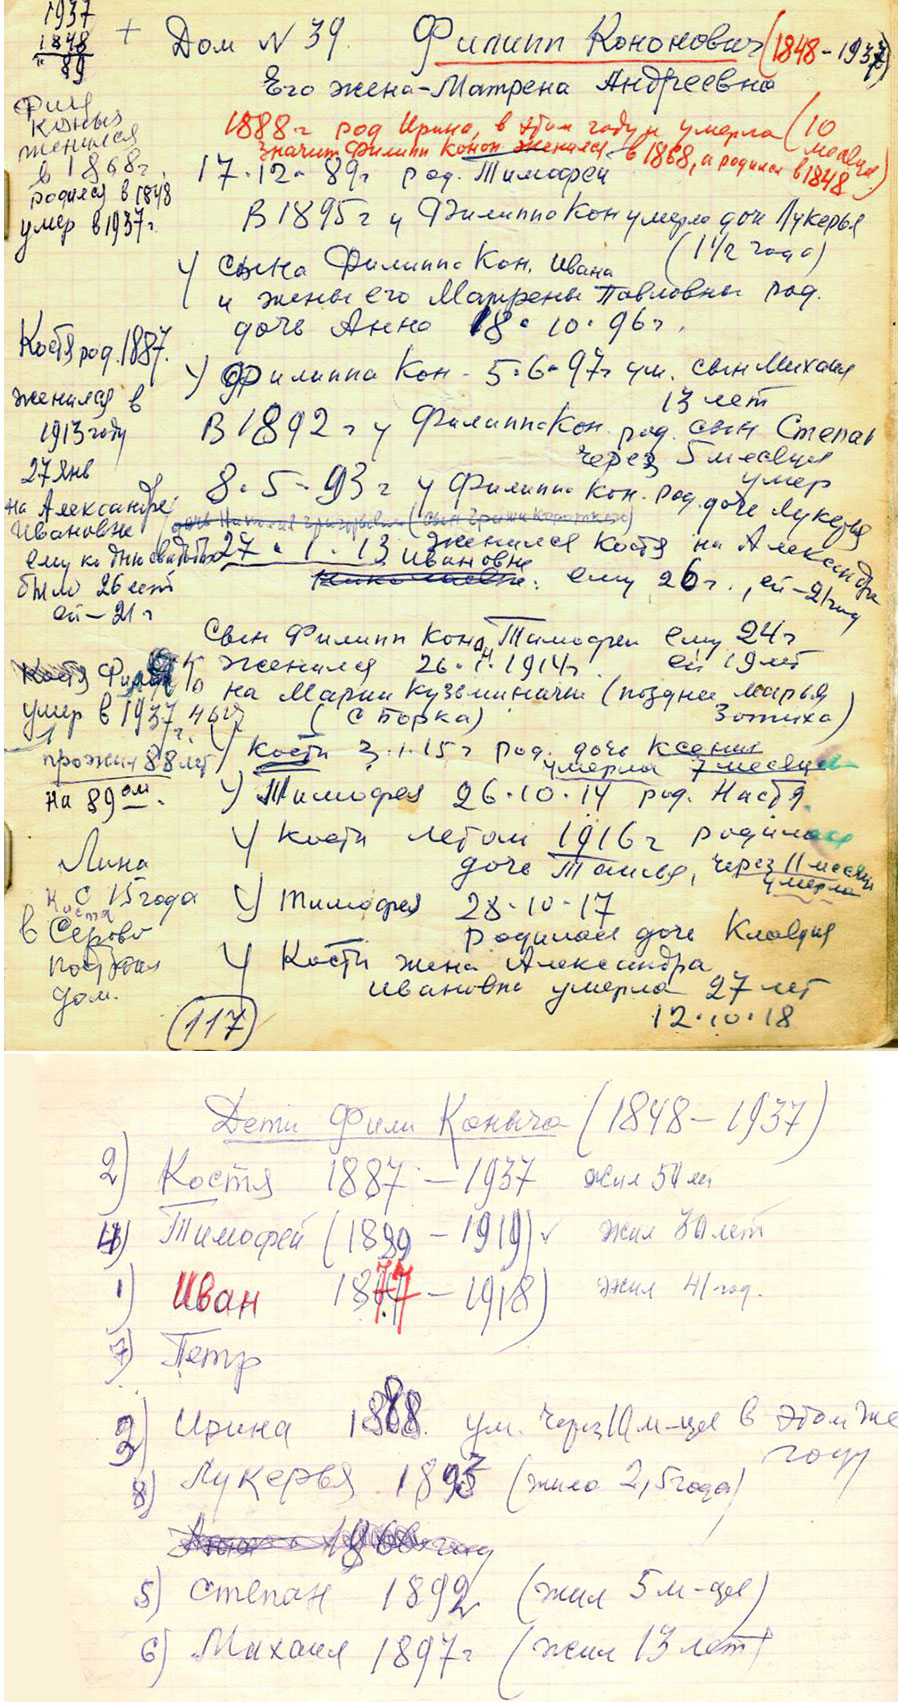 1937
1848
89
+ Дом N 39. Филипп Кононович (1848-1937)
Его жена-Матрена Андреевна
Филя
Коныч
женился
в 1868г.
родился в 1848
умер в 1937г.
1888г род Ирина, в этом году и умерла (10 месяцев)
значит Филипп Конон женился в 1868, а родился в 1848
17.12.89г род. Тимофей
В 1895г у Филиппа Кон умерла дочь Лукерья
(1 1/2 года)
У сына Филиппа Кон. Ивана
и жены его Матрены Павловны род.
дочь Анна 18.10.96г.
У Филиппа Кон - 5.6.97г ум. сын Михаил
13 лет
В 1892г у Филиппа Кон. род. сын Степан
через 5 месяцев
умер
8.5.93г у Филиппа Кон. род. дочь Лукерья
27.1.13 женился Костя на Александре
Ивановне
ему 26г., ей-21год
Костя род. 1887.
женился в
1913 году
27 янв
на Александре
Ивановне
ему ко дню свадьбы
было 26 лет
ей-21г
Сын Филипп Кон. Тимофей ему 24г
женился 26.1.1914г. ей 19 лет
на Марии Кузьминичне (позднее Марья
(с Борка) Зотиха)
умер в 1937г.
прожил 88 лет
на 89ом.
У Кости 3.1.15г род. дочь Ксения
умерла 7 месяцев
У Тимофея 26.10.14 род. Настя.
У Кости летом 1916г родилась
дочь Таисья, через 11 месяц
умерла
У Тимофея 28.10.17
родилась дочь Клавдия
У Кости жена Александра
Ивановна умерла 27 лет
12.10.18
Лина
с 15 года
Костя
в Серово
построил
дом.
117
Дети Фили Коныча (1848-1937)
2) Костя 1887-1937 жил 50 лет
4) Тимофей (1889-1919) жил 30 лет
1) Иван 1877-1918) жил 41 год.
7) Петр
3) Ирина 1888. ум. через 10 м-цев в этом же
году
8) Лукерья 1893 (жила 2,5 года)
5) Степан 1892 (жил 5 м-цев)
6) Михаил 1897г (жил 13 лет)